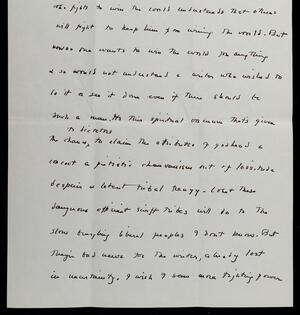 who fights to win the world understands that others
will fight to keep him from winning the world. But
no one wants to win the world for anything
& so would not understand a writer who wished to
do it or see it done even if there should be
such a man. It's this spiritual vacuum that's given
to dictators
the chance, to claim the attributes of godhead &
a patriotic chauvinism out of lassitude
despair & latent tribal
dangerous efficient tribes will do to the
slow bumbling liberal peoples I don't know. But
bad news for the writer, already lost
in uncertainty. I wish I saw more fighting power